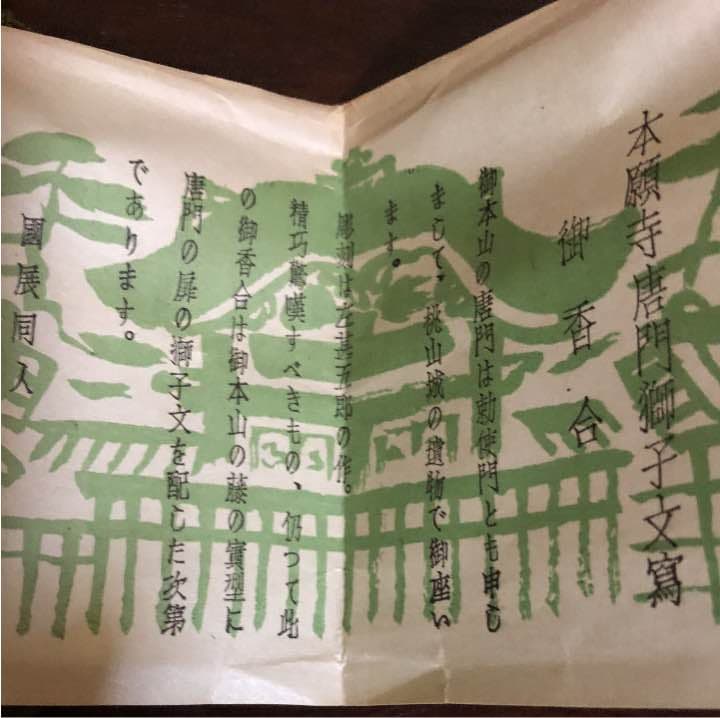 本願寺唐門獅子文寫
御香合
御本山の唐門は勅使門とも申し
まして、桃山城の遺物で御座い
ます。
彫刻は左甚五郎の作。
精巧驚嘆すべきもの、仍つて此
の御香合は御本山の藤の實型に
唐門の扉の獅子文を配した次第
であります。
國展同人